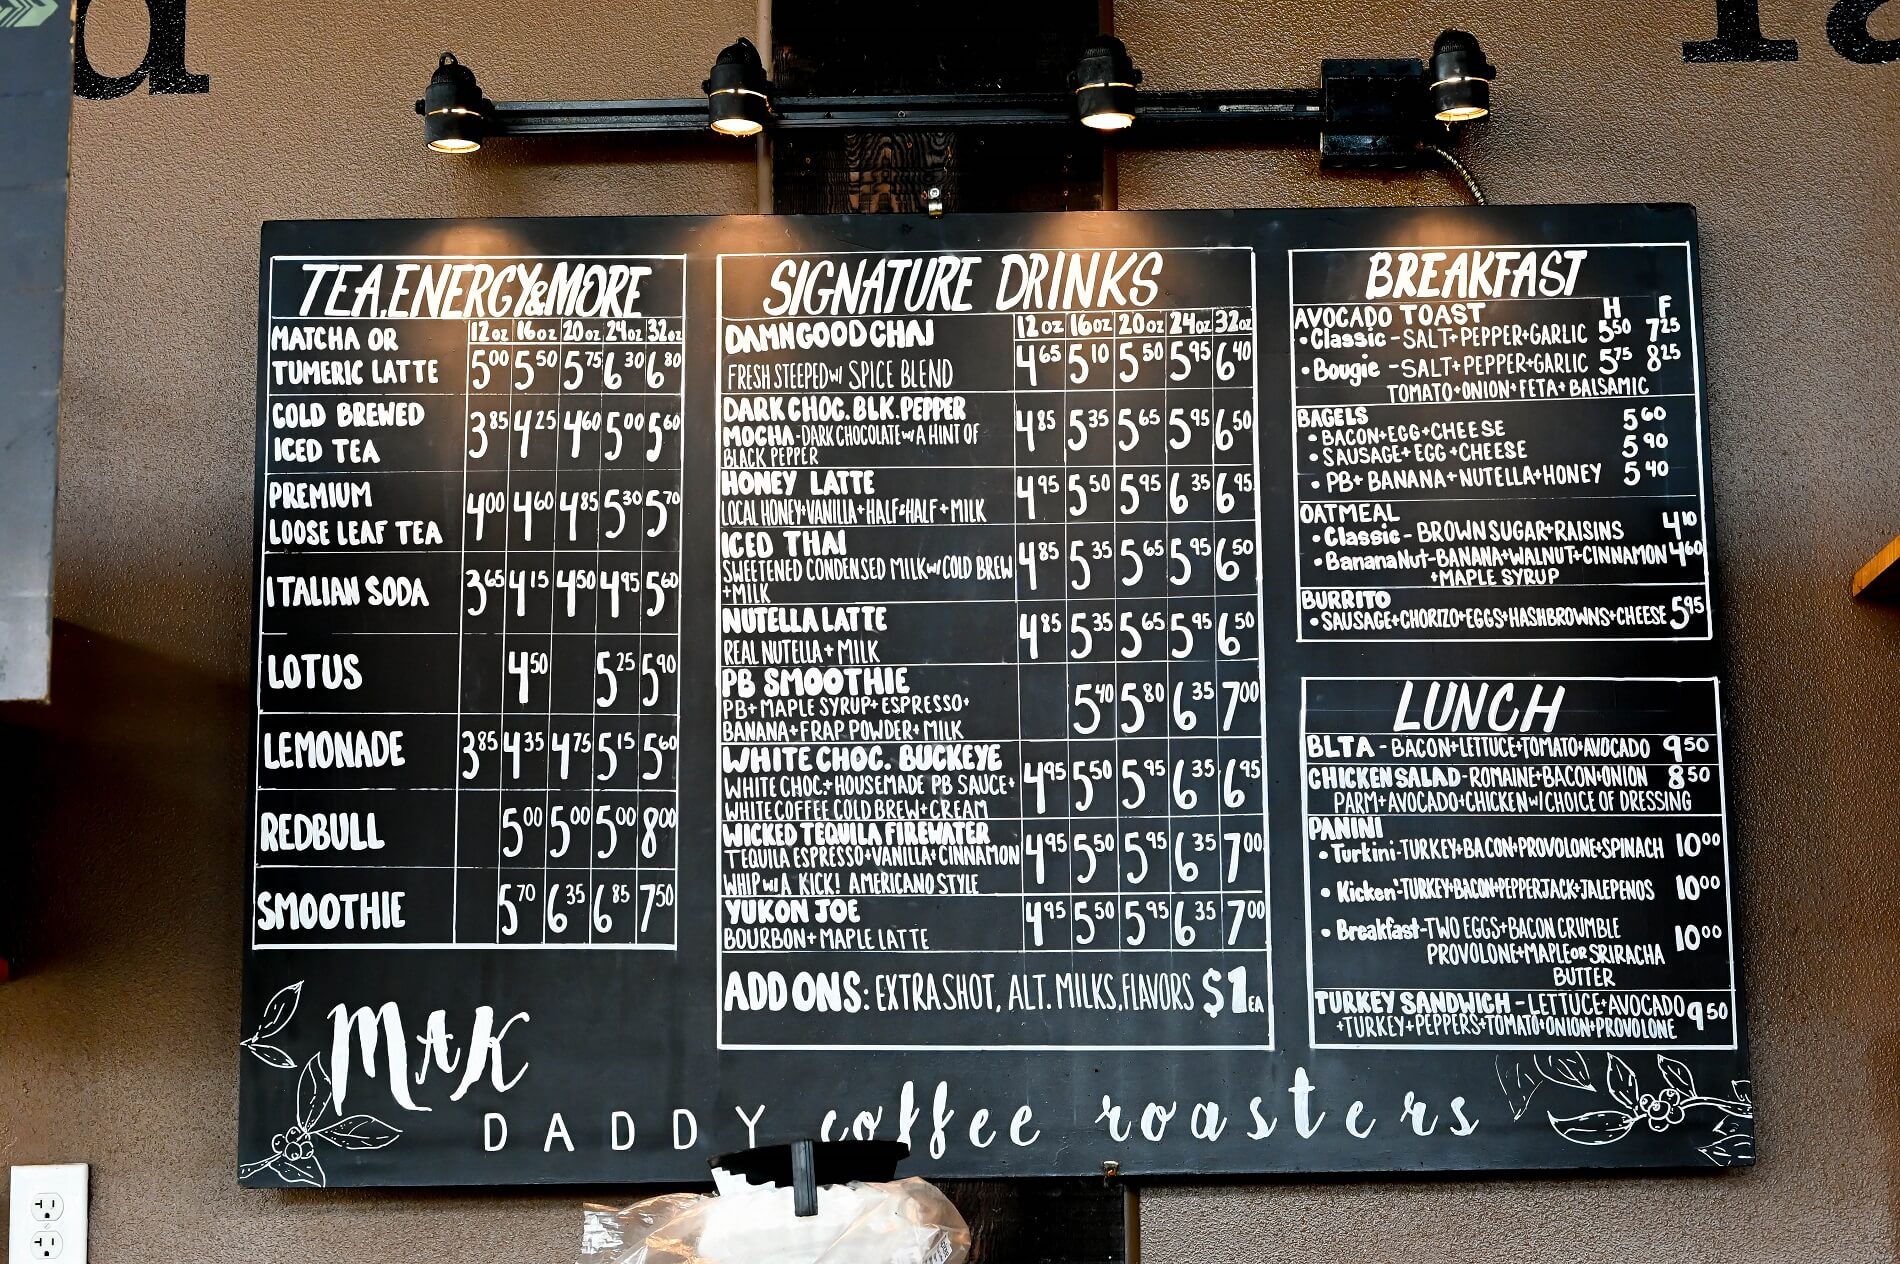 d
ra
TEA, ENERGY & MORE
12oz 16oz 20oz 24oz 32oz
MATCHA OR
TUMERIC LATTE 5⁰⁰ 5⁵⁰ 5⁷⁵ 6³⁰ 6⁸⁰
COLD BREWED
ICED TEA 3⁸⁵ 4²⁵ 4⁶⁰ 5⁰⁰ 5⁶⁰
PREMIUM
LOOSE LEAF TEA 4⁰⁰ 4⁶⁰ 4⁸⁵ 5³⁰ 5⁷⁰
ITALIAN SODA 3⁶⁵ 4¹⁵ 4⁵⁰ 4⁹⁵ 5⁶⁰
LOTUS 4⁵⁰ 5²⁵ 5⁹⁰
LEMONADE 3⁸⁵ 4³⁵ 4⁷⁵ 5¹⁵ 5⁶⁰
REDBULL 5⁰⁰ 5⁰⁰ 5⁰⁰ 8⁰⁰
SMOOTHIE 5⁷⁰ 6³⁵ 6⁸⁵ 7⁵⁰
SIGNATURE DRINKS
DAMN GOOD CHAI 12oz 16oz 20oz 24oz 32oz
FRESH STEEPED w/ SPICE BLEND 4⁶⁵ 5¹⁰ 5⁵⁰ 5⁹⁵ 6⁴⁰
DARK CHOC. BLK. PEPPER
MOCHA - DARK CHOCOLATE w/ A HINT OF 4⁸⁵ 5³⁵ 5⁶⁵ 5⁹⁵ 6⁵⁰
BLACK PEPPER
HONEY LATTE 4⁹⁵ 5⁵⁰ 5⁹⁵ 6³⁵ 6⁹⁵
LOCAL HONEY + VANILLA + HALF & HALF + MILK
ICED THAI
SWEETENED CONDENSED MILK w/ COLD BREW 4⁸⁵ 5³⁵ 5⁶⁵ 5⁹⁵ 6⁵⁰
+ MILK
NUTELLA LATTE 4⁸⁵ 5³⁵ 5⁶⁵ 5⁹⁵ 6⁵⁰
REAL NUTELLA + MILK
PB SMOOTHIE
PB + MAPLE SYRUP + ESPRESSO + 5⁴⁰ 5⁸⁰ 6³⁵ 7⁰⁰
BANANA + FRAP POWDER + MILK
WHITE CHOC. BUCKEYE
WHITE CHOC. + HOUSEMADE PB SAUCE + 4⁹⁵ 5⁵⁰ 5⁹⁵ 6³⁵ 6⁹⁵
WHITE COFFEE COLD BREW + CREAM
WICKED TEQUILA FIREWATER
TEQUILA ESPRESSO + VANILLA + CINNAMON 4⁹⁵ 5⁵⁰ 5⁹⁵ 6³⁵ 7⁰⁰
WHIP w/ A KICK! AMERICANO STYLE
YUKON JOE 4⁹⁵ 5⁵⁰ 5⁹⁵ 6³⁵ 7⁰⁰
BOURBON + MAPLE LATTE
ADD ONS: EXTRA SHOT, ALT. MILKS, FLAVORS $1 EA
BREAKFAST
AVOCADO TOAST H F
• Classic - SALT + PEPPER + GARLIC 5⁵⁰ 7²⁵
• Bougie - SALT + PEPPER + GARLIC 5⁷⁵ 8²⁵
TOMATO + ONION + FETA + BALSAMIC
BAGELS
• BACON + EGG + CHEESE 5⁶⁰
• SAUSAGE + EGG + CHEESE 5⁹⁰
• PB + BANANA + NUTELLA + HONEY 5⁴⁰
OATMEAL
• Classic - BROWN SUGAR + RAISINS 4¹⁰
• Banana Nut - BANANA + WALNUT + CINNAMON 4⁶⁰
+ MAPLE SYRUP
BURRITO
• SAUSAGE + CHORIZO + EGGS + HASHBROWNS + CHEESE 5⁹⁵
LUNCH
BLTA - BACON + LETTUCE + TOMATO + AVOCADO 9⁵⁰
CHICKEN SALAD - ROMAINE + BACON + ONION 8⁵⁰
PARM + AVOCADO + CHICKEN w/ CHOICE OF DRESSING
PANINI
• Turkini - TURKEY + BACON + PROVOLONE + SPINACH 10⁰⁰
• Kicken' - TURKEY + BACON + PEPPERJACK + JALEPENOS 10⁰⁰
• Breakfast - TWO EGGS + BACON CRUMBLE 10⁰⁰
PROVOLONE + MAPLE OR SRIRACHA
BUTTER
TURKEY SANDWICH - LETTUCE + AVOCADO 9⁵⁰
+ TURKEY + PEPPERS + TOMATO + ONION + PROVOLONE
MAK
DADDY coffee roasters